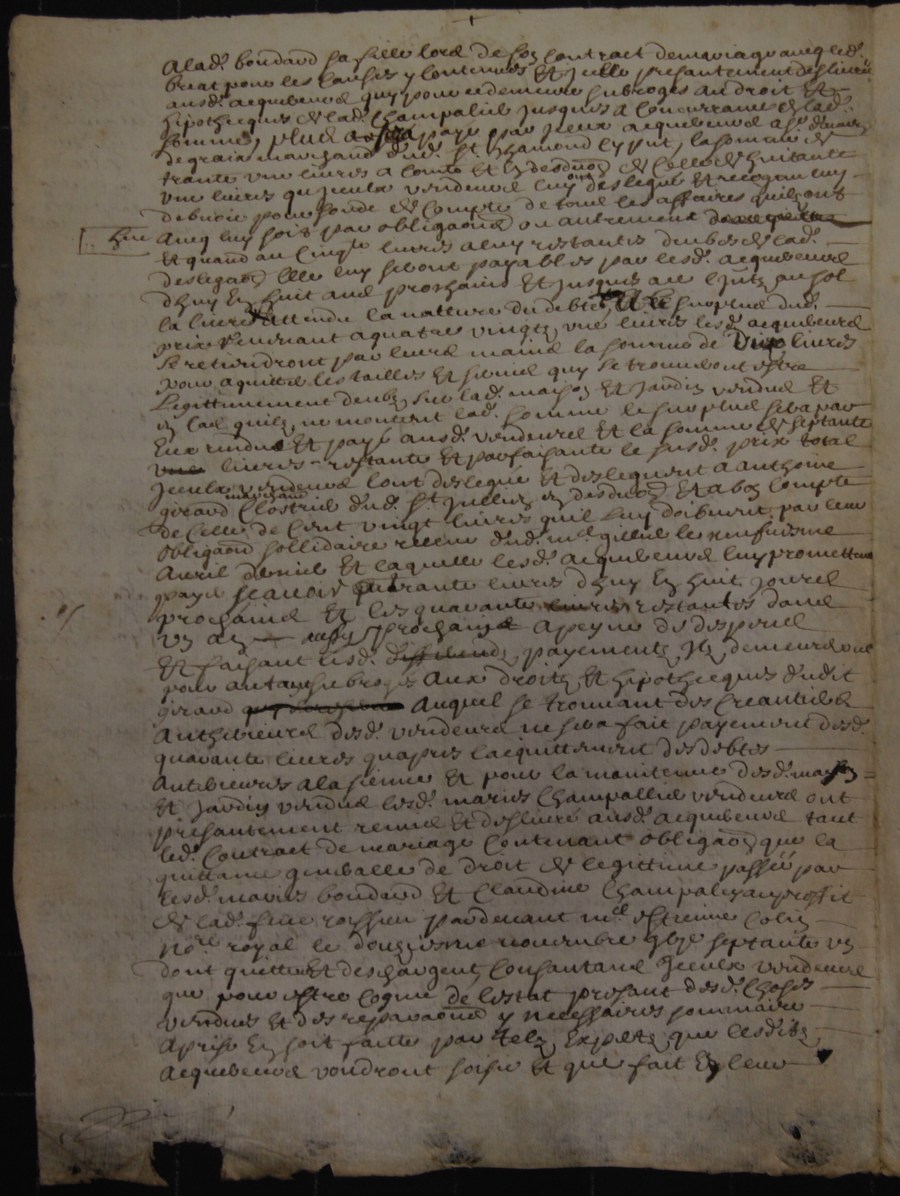 A lad. boudard sa fille lors de son contract de mariage avecq led.
briat pour les causes y contenues Et Icelle presantement deslivrée
ausd. acquéreurs quy pour ce demeure subrogés au droit Et
hipothecques de lad. Champalie jusques a concurrance de lad.
somme, plus a esté payé par Iceux acquereurs a
degraix marchand dud. St chamond cy put, la somme de
trante une livres a compte Et en desduon de celle de huitante
une livres qu'Iceulx vendeurs luy ont deslegué Et recogneu luy
debvoir pour sonde de compte de tous les affaires quilz ont
heu avecq luy soit par obligaons ou autrement
Et quand au Cinqte livres a luy restantes deubes de lad.
deslegaon Elle luy seront payables par lesd. acquereurs
dhuy En huit ans prochains Et jusques au
la livre attendu la nature du debte, Et le surplus dud.
prix revenant a quatre vingtz une livres lesd. acquereurs
se retiendront par leurs mains la somme de livres
pour aquitter les tailles Et servis quy se trouveront estre
Legittimement deubz sur lad. maison Et Jardin vendus Et
En cas quilz ne montent lad. somme le surplus sera par
Eux rendue Et payé ausd. vendeurs Et la somme de septante
livres restante Et parfaisante le susd. prix total
Iceulx vendeurs l'ont deslegué Et desleguent a anthoine
giraud Clostrier marchand dud. St Jullien En desduon Et a bon compte
de Celle de Cent vingt livres quil luy doibvent par leur
obligaon sollidaire receue dud. me gillier le neufviesme
avril dernier Et laquelle lesd. acquereurs luy promettent
payer scavoir quarante livres dhuy En huit jours
prochains Et les quarante livres restantes dans
un an prochains a peyne de despens
Et faisant lesd. payementz Ilz demeureront
pour autant subrogés aux droitz Et hipothecques dudit
giraud Auquel se trouvant des creantiers
Antherieurs desd. vendeurs ne sera fait payement desd.
quarante livres quapres lacquittement des debtes
anterieures a la sienne Et pour la maintenue desd. maison
Et Jardin vendus lesd. mariés Champallier vendeurs ont
presantement remis Et deslivré ausd. acquereurs tant
led. contract de mariage contenant obligaon que la
quittance generalle de droit de legittime passée par
lesd. mariés boudard Et Claudine Champalay au proffit
de lad. feue par devant me estienne Colin
nore royal le douziesme novembre gbjc septante un
dont quittent Et deschargent, consantans Iceulx vendeurs
que pour estre cogneu de lestat presant desd. choses
vendues Et des reparaons y necessaires sommaire
aprise En soit faitte par telz Expertz que lesditz
acquereurs voudront soisir Et que fait En leur